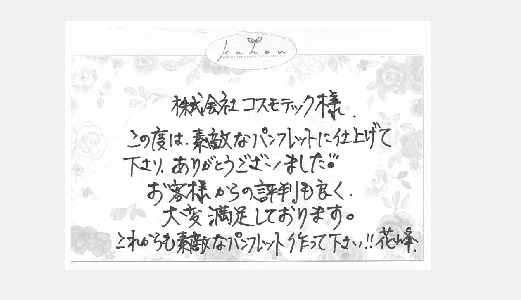 kahou
株式会社コスモテック様.
この度は、素敵なパンフレットに仕上げて
下さり、ありがとうございました
お客様からの評判も良く、
大変満足しております。
これからも素敵なパンフレット作って下さい!!花峰.